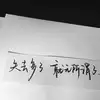 失去多了 就无所谓了